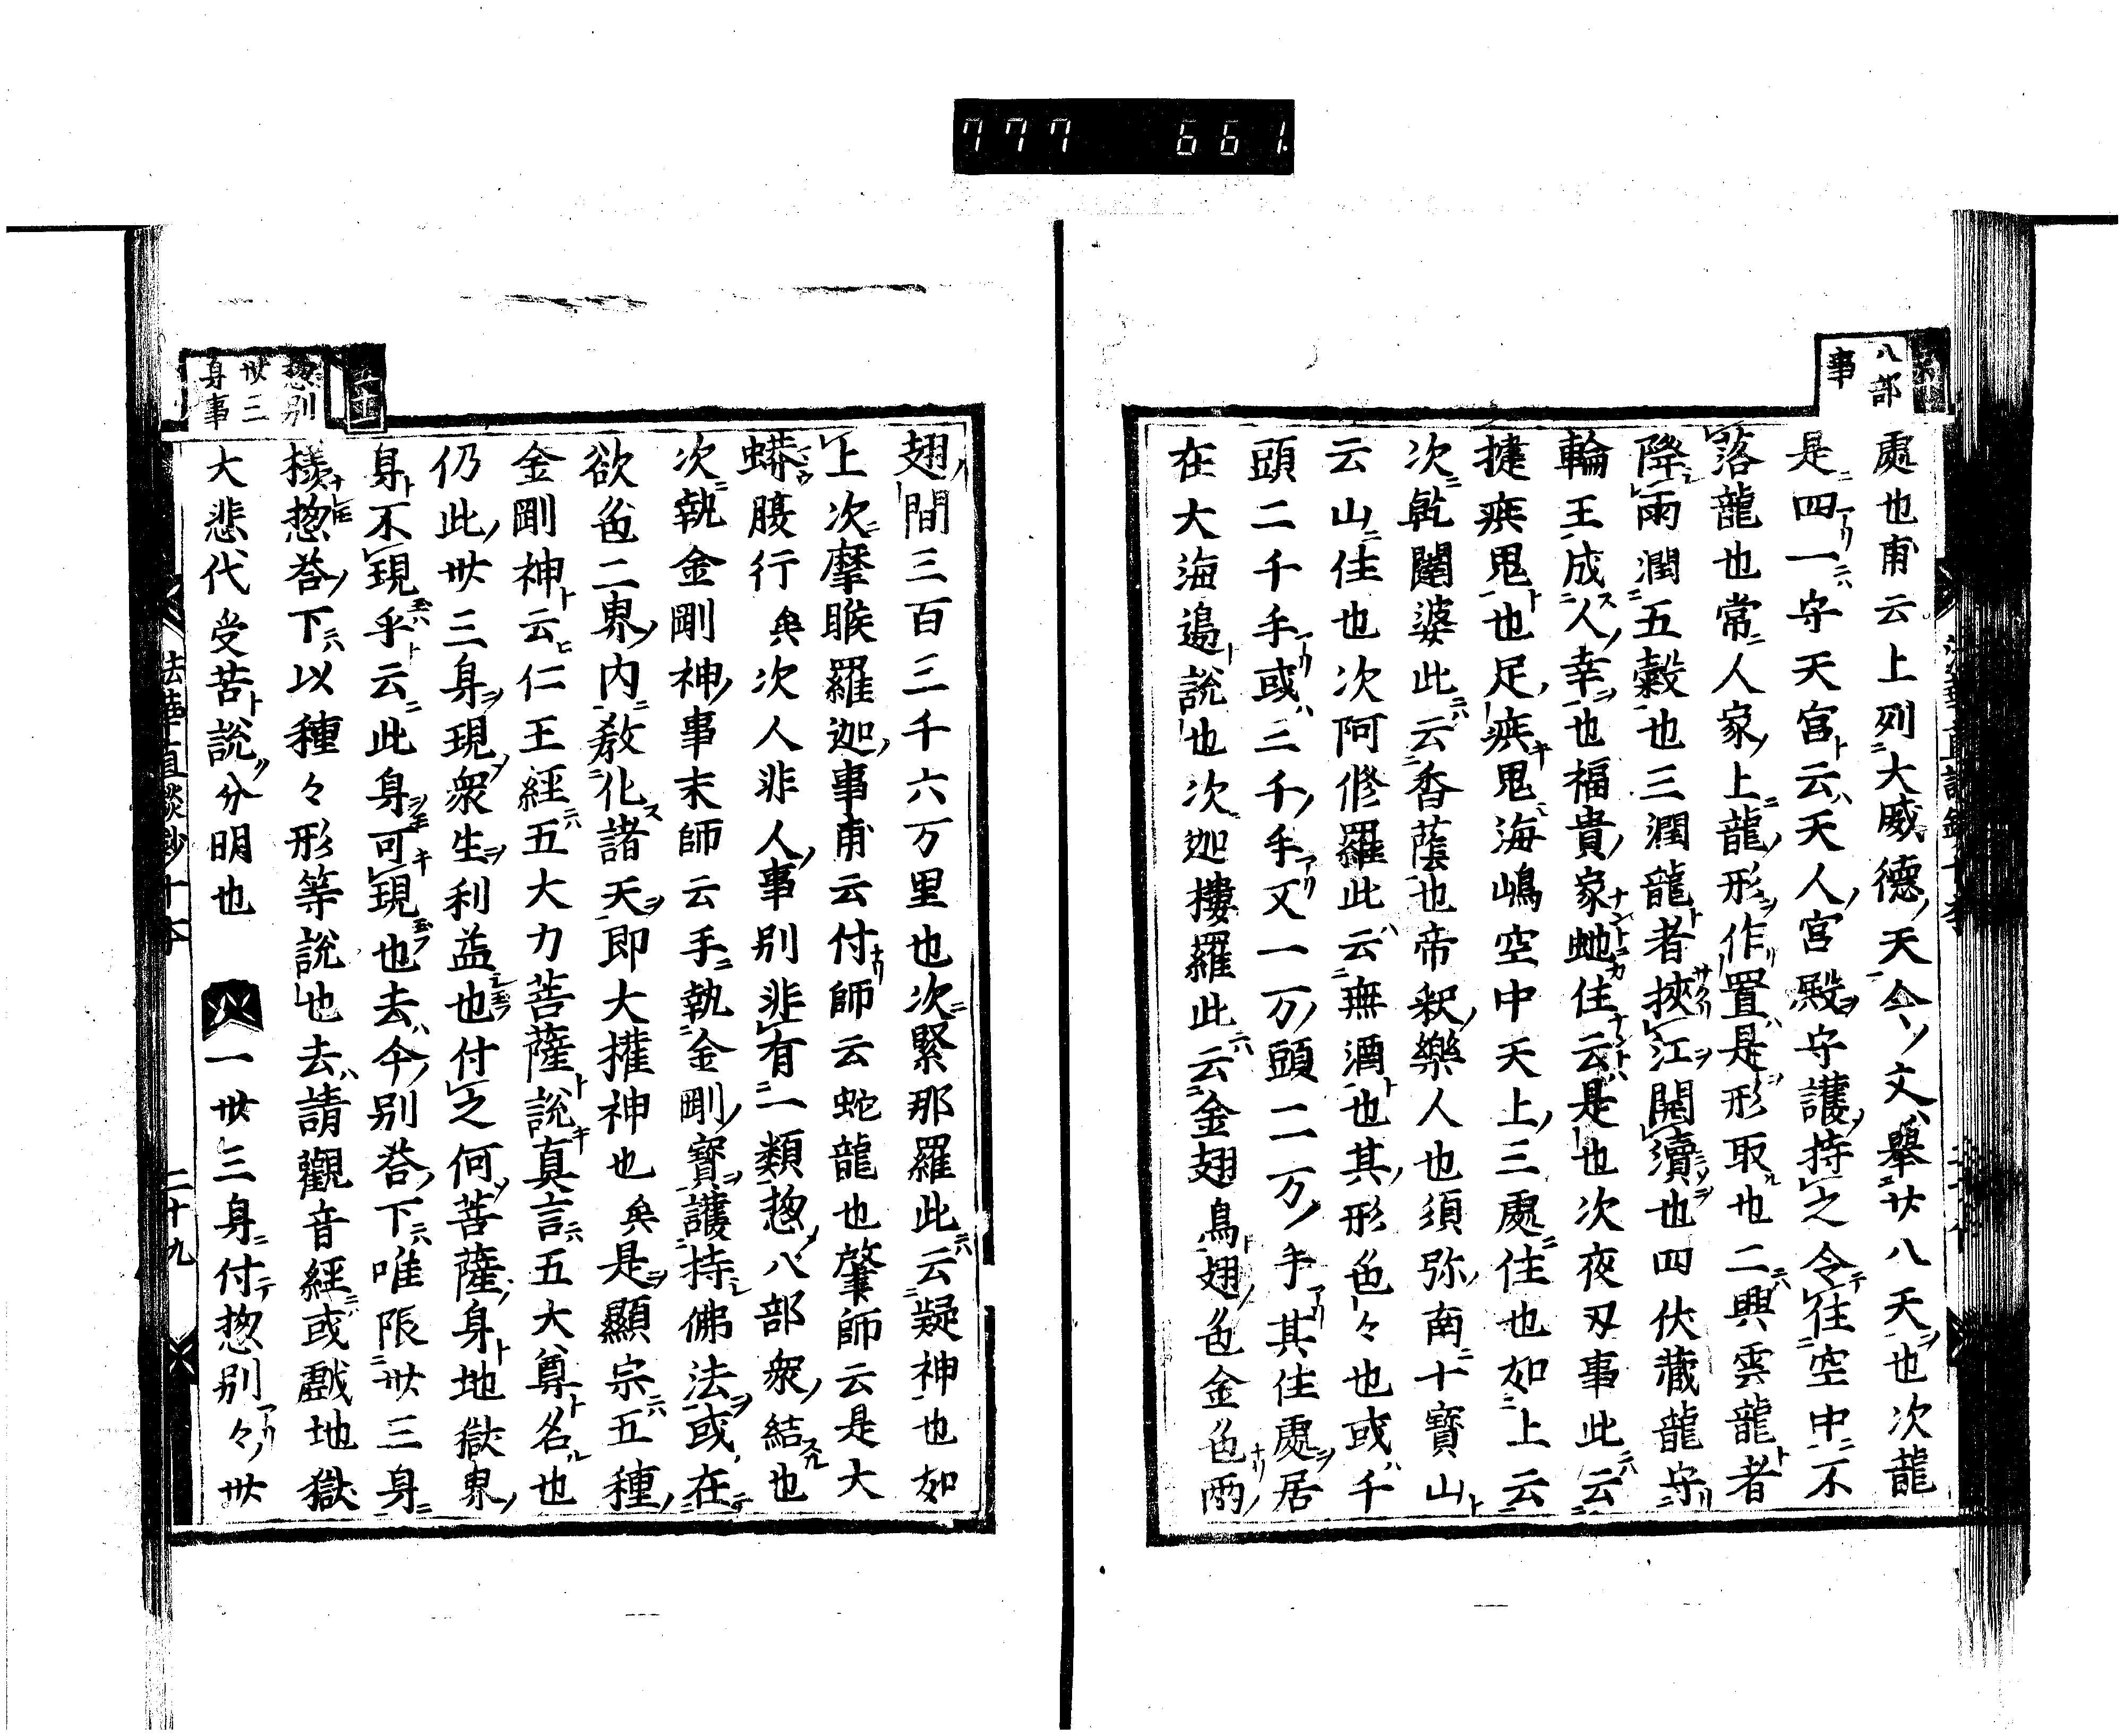 777 661
八部
事
處也甫云上列大威德天今文擧廿八天也次龍
是四一守天宮云天人宮殿守護持之令住空中不
落龍也常人家上龍形作置是形取也二興雲龍者
降雨潤五糓也三潤龍者挾江開瀆也四伏藏龍守
輪王成人幸也福貴家虵住云是也次夜叉事此云
捷疾鬼也足疾鬼海嶋空中天上三處住也如上云
次乹闥婆此云香蔭也帝釈樂人也須弥南十寶山
云山住也次阿修羅此云無酒也其形色々也或千
頭二千手或三千手又一万頭二万手其住處居
在大海邉説也次迦樓羅此云金翅鳥翅色金色兩
翅間三百三千六万里也次緊那羅此云疑神也如
上次摩睺羅迦事甫云付師云蛇龍也肇師云是大
蟒腹行矣次人非人事別非有一類惣八部衆結也
次執金剛神事末師云手執金剛寳護持佛法或在
欲色二界内教化諸天即大權神也矣是顯宗五種
金剛神云仁王經五大力菩薩説真言五大尊名也
仍此丗三身現衆生利益也付之何菩薩身地獄界
身不現乎云此身可現也去今別荅下唯限丗三身
樣惣荅下以種々形等説也去請觀音經或戲地獄
大悲代受苦説分明也 一丗三身付惣別々丗
惣別
丗三
身事
法華直談鈔十本
二十九